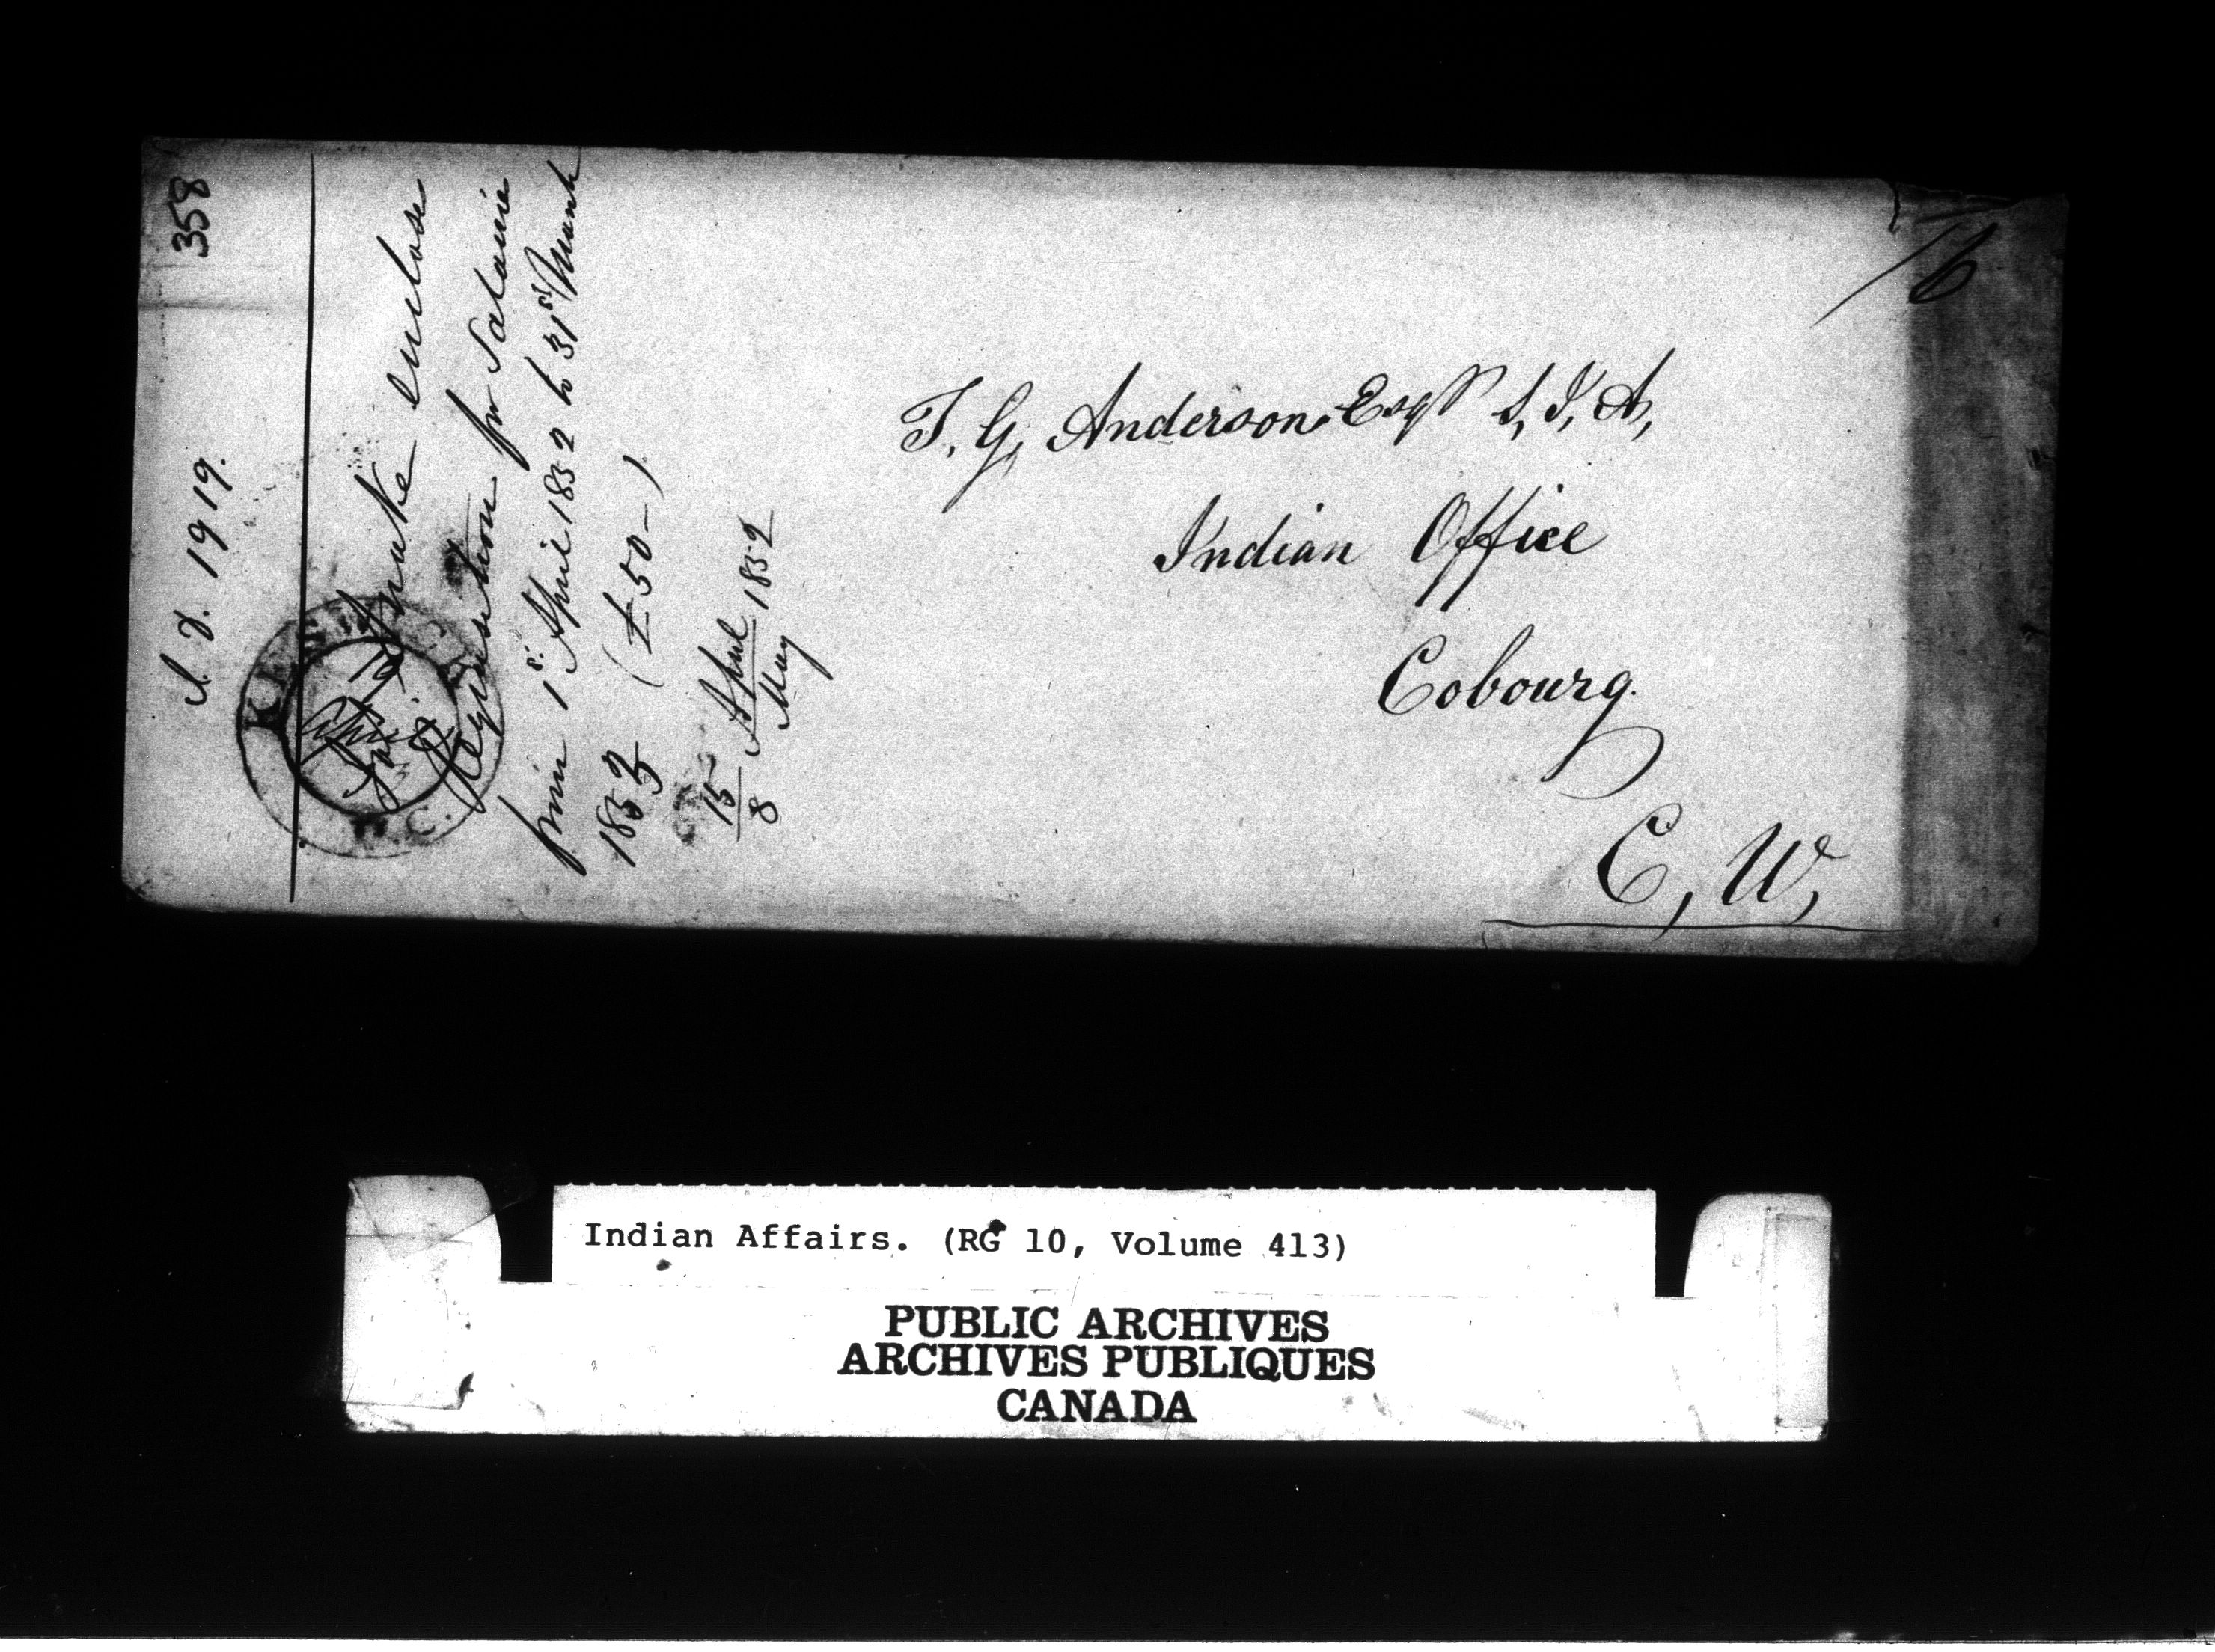 358
1919.
enclose
Requisition for Salarie
from 1st April 1852 to 31st March
1853 (£50-)
15 April 1852
8 May
16
T. G. Anderson Esqr S, I, A,
Indian Office
Cobourg.
C, W,
Indian Affairs. (RG 10, Volume 413)
PUBLIC ARCHIVES
ARCHIVES PUBLIQUES
CANADA